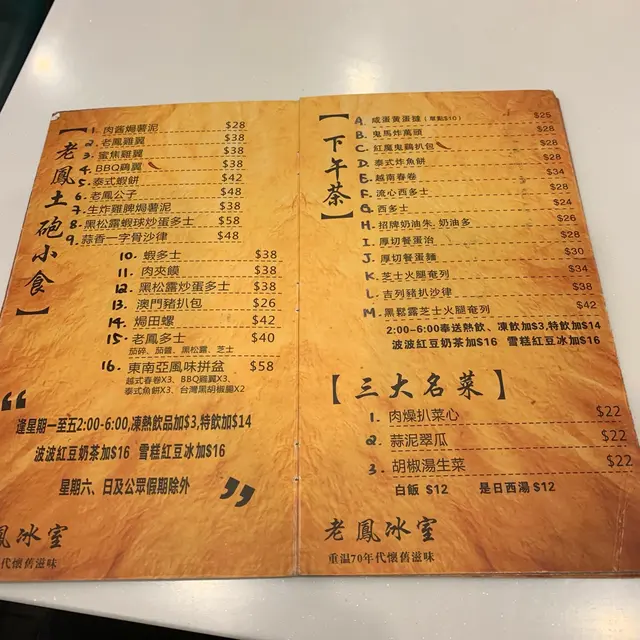 【老鳳土砲小食】
1. 肉醬焗薯泥 $28
2. 老鳳雞翼 $38
3. 蜜焦雞翼 $38
4. BBQ鷄翼 $38
5. 泰式蝦餅 $42
6. 老鳳公子 $48
7. 生炸雞脾焗薯泥 $38
8. 黑松露蝦球炒蛋多士 $58
9. 蒜香一字骨沙律 $48
10. 蝦多士 $38
11. 肉夾饃 $38
12. 黑松露炒蛋多士 $38
13. 澳門豬扒包 $26
14. 焗田螺 $42
15. 老鳳多士 $40
茄碎、茄醬、黑松露、芝士
16. 東南亞風味拼盆 $58
越式春卷X3、BBQ鷄翼X3、
泰式魚餅X3、台灣黑胡椒腸X2
“
逢星期一至五2:00-6:00,凍熱飲品加$3,特飲加$14
波波紅豆奶茶加$16 雪糕紅豆冰加$16
星期六、日及公眾假期除外
”
鳳冰室
代懷舊滋味
【下午茶】
A. 咸蛋黃蛋撻（單點$10） $25
B. 鬼馬炸饅頭 $28
C. 紅魔鬼鷄扒包 $28
D. 泰式炸魚餅 $28
E. 越南春卷 $34
F. 流心西多士 $28
G. 西多士 $24
H. 招牌奶油朱、奶油多 $26
I. 厚切餐蛋治 $28
J. 厚切餐蛋麵 $30
K. 芝士火腿奄列 $34
L. 吉列豬扒沙律 $38
M. 黑鬆露芝士火腿奄列 $42
2:00-6:00奉送熱飲、凍飲加$3,特飲加$14
波波紅豆奶茶加$16 雪糕紅豆冰加$16
【三大名菜】
1. 肉燥扒菜心 $22
2. 蒜泥翠瓜 $22
3. 胡椒湯生菜 $22
白飯 $12 是日西湯 $12
老鳳冰室
重温70年代懷舊滋味